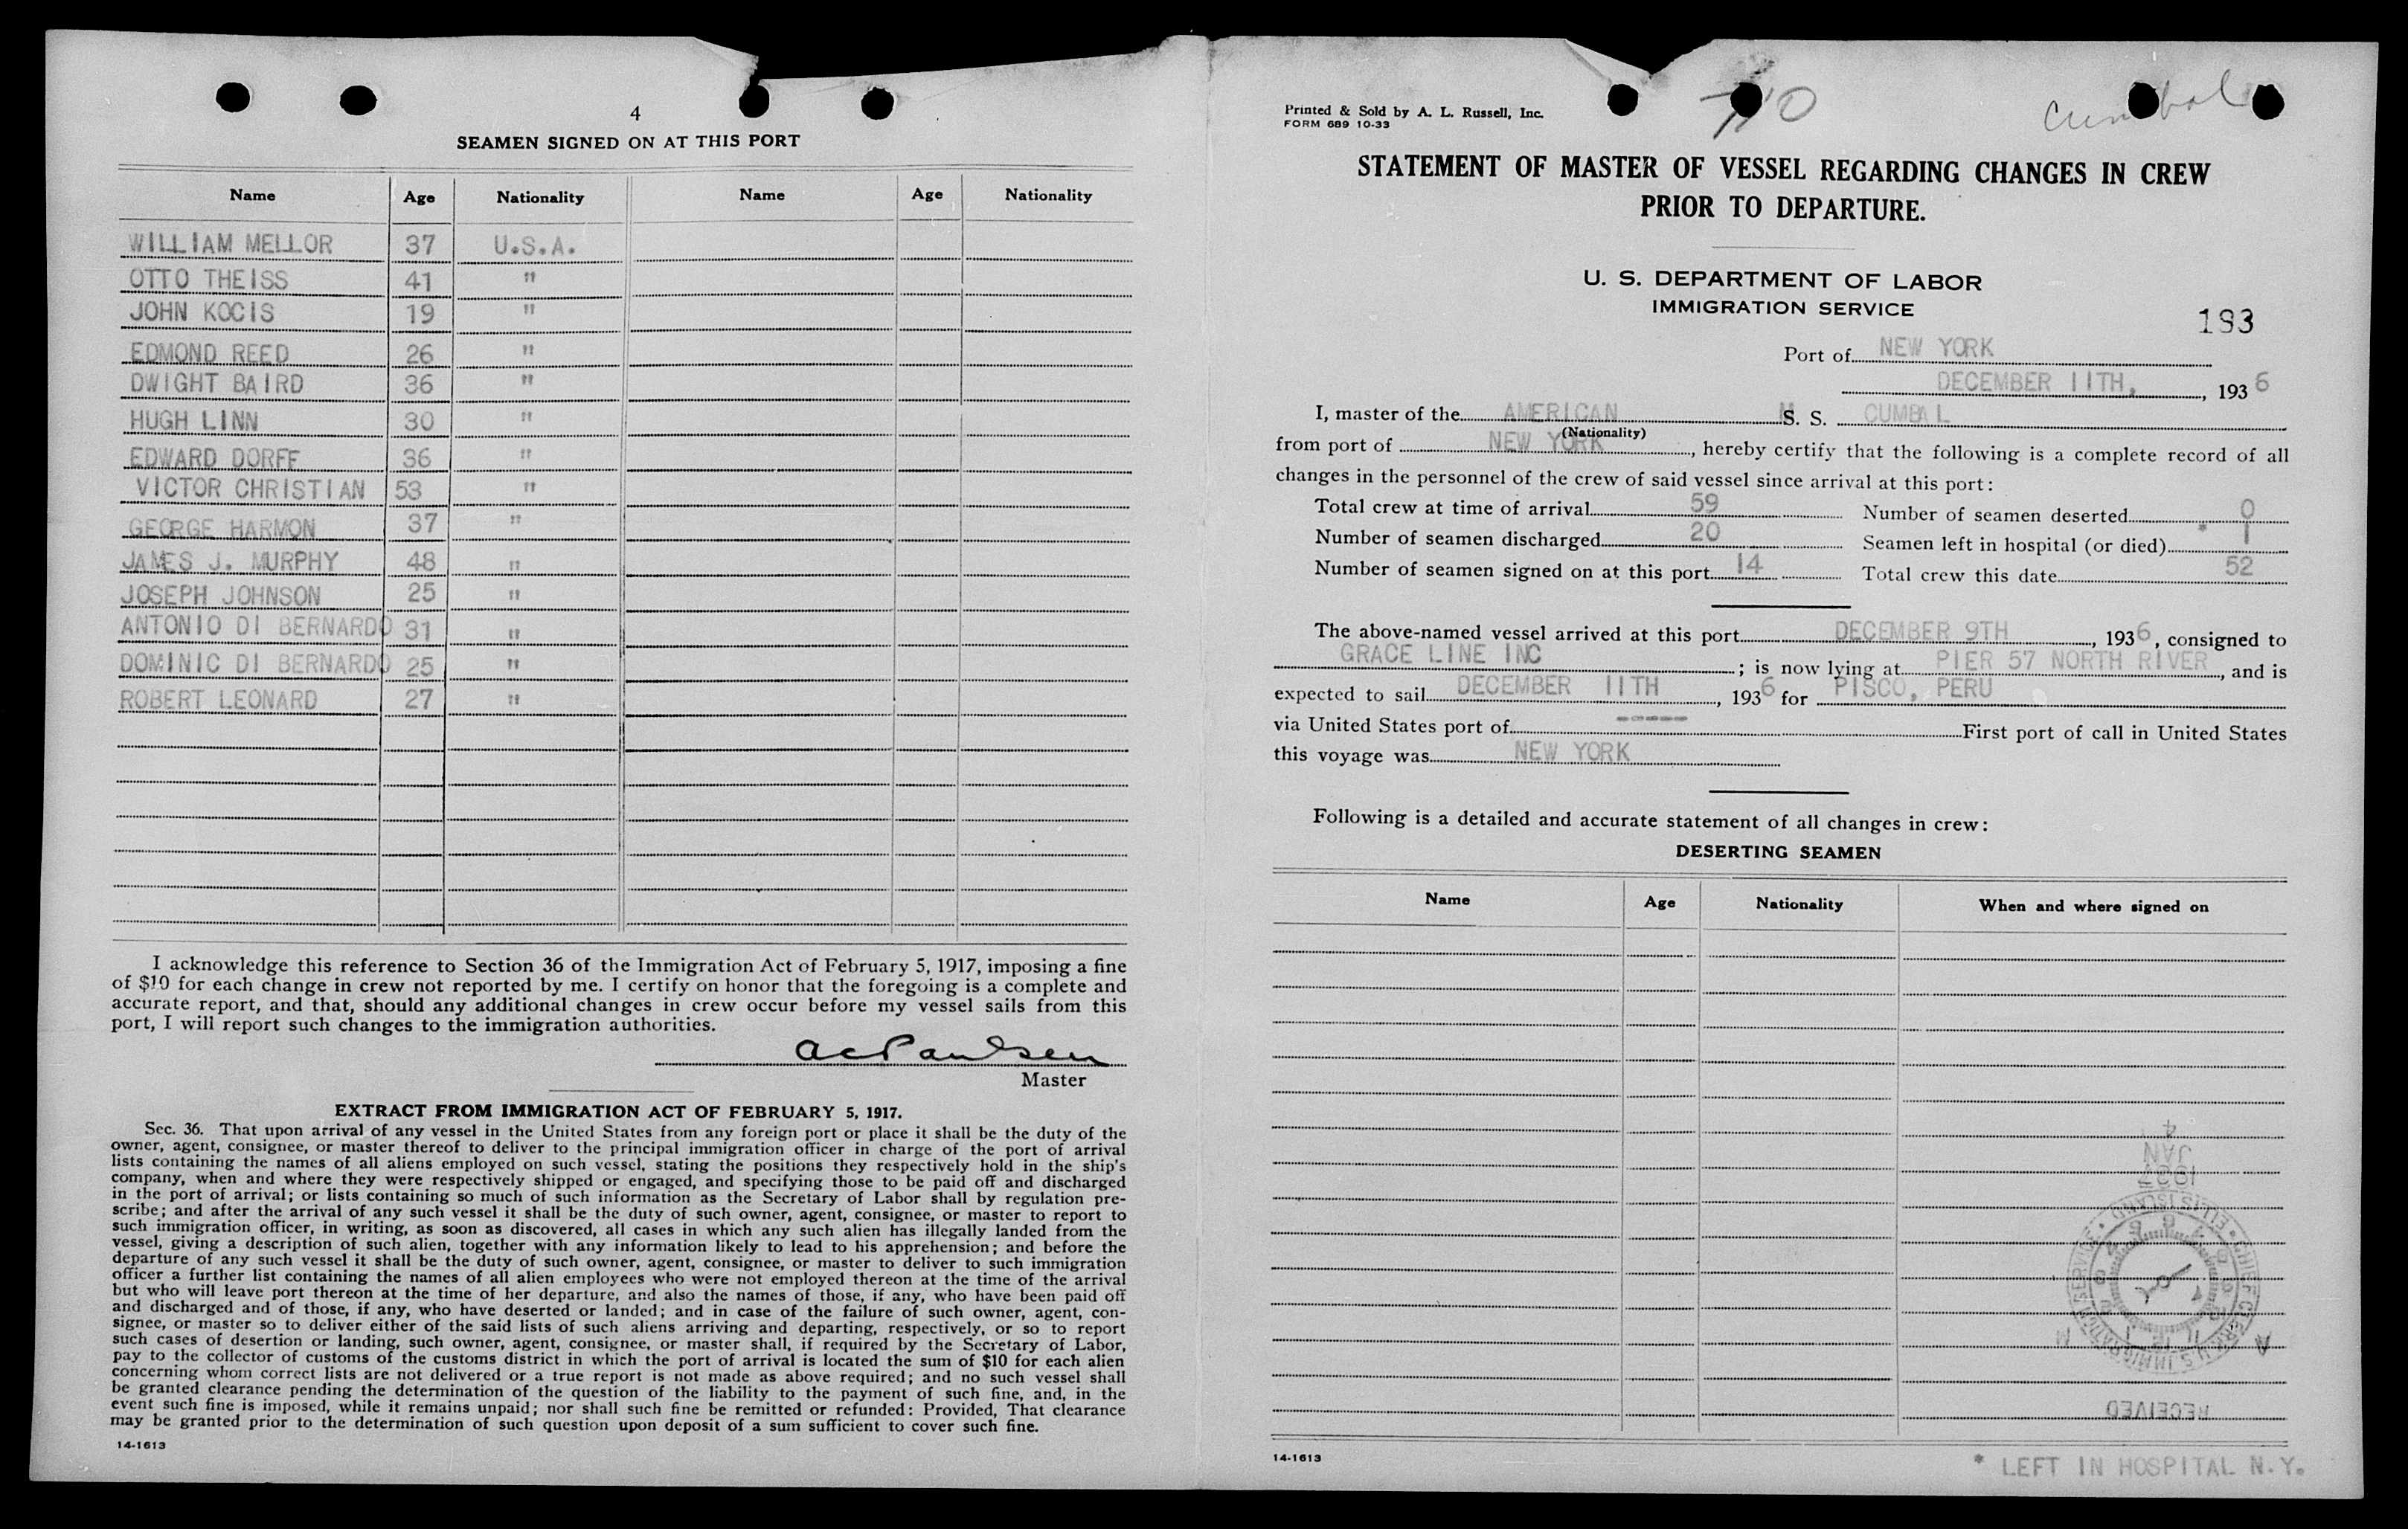 4
SEAMEN SIGNED ON AT THIS PORT
Name Age Nationality Name Age Nationality
WILLIAM MELLOR 37 U.S.A.
OTTO THEISS 41 "
JOHN KOCIS 19 "
EDMOND REED 26 "
DWIGHT BAIRD 36 "
HUGH LINN 30 "
EDWARD DORFF 36 "
VICTOR CHRISTIAN 53 "
GEORGE HARMON 37 "
JAMES J. MURPHY 48 "
JOSEPH JOHNSON 25 "
ANTONIO DI BERNARDO 31 "
DOMINIC DI BERNARDO 25 "
ROBERT LEONARD 27 "
I acknowledge this reference to Section 36 of the Immigration Act of February 5, 1917, imposing a fine
of $10 for each change in crew not reported by me. I certify on honor that the foregoing is a complete and
accurate report, and that, should any additional changes in crew occur before my vessel sails from this
port, I will report such changes to the immigration authorities.
ACPaulsen
Master
EXTRACT FROM IMMIGRATION ACT OF FEBRUARY 5, 1917.
Sec. 36. That upon arrival of any vessel in the United States from any foreign port or place it shall be the duty of the
owner, agent, consignee, or master thereof to deliver to the principal immigration officer in charge of the port of arrival
lists containing the names of all aliens employed on such vessel, stating the positions they respectively hold in the ship's
company, when and where they were respectively shipped or engaged, and specifying those to be paid off and discharged
in the port of arrival; or lists containing so much of such information as the Secretary of Labor shall by regulation pre-
scribe; and after the arrival of any such vessel it shall be the duty of such owner, agent, consignee, or master to report to
such immigration officer, in writing, as soon as discovered, all cases in which any such alien has illegally landed from the
vessel, giving a description of such alien, together with any information likely to lead to his apprehension; and before the
departure of any such vessel it shall be the duty of such owner, agent, consignee, or master to deliver to such immigration
officer a further list containing the names of all alien employees who were not employed thereon at the time of the arrival
but who will leave port thereon at the time of her departure, and also the names of those, if any, who have been paid off
and discharged and of those, if any, who have deserted or landed; and in case of the failure of such owner, agent, con-
signee, or master so to deliver either of the said lists of such aliens arriving and departing, respectively, or so to report
such cases of desertion or landing, such owner, agent, consignee, or master shall, if required by the Secretary of Labor,
pay to the collector of customs of the customs district in which the port of arrival is located the sum of $10 for each alien
concerning whom correct lists are not delivered or a true report is not made as above required; and no such vessel shall
be granted clearance pending the determination of the question of the liability to the payment of such fine, and, in the
event such fine is imposed, while it remains unpaid; nor shall such fine be remitted or refunded: Provided, That clearance
may be granted prior to the determination of such question upon deposit of a sum sufficient to cover such fine.
14-1613
Printed & Sold by A. L. Russell, Inc.
FORM 689 10-33
Cumbal
STATEMENT OF MASTER OF VESSEL REGARDING CHANGES IN CREW
PRIOR TO DEPARTURE.
U. S. DEPARTMENT OF LABOR
IMMIGRATION SERVICE
193
Port of NEW YORK
DECEMBER 11TH, , 1936
I, master of the AMERICAN S. S. CUMBAL
(Nationality)
from port of NEW YORK, hereby certify that the following is a complete record of all
changes in the personnel of the crew of said vessel since arrival at this port:
Total crew at time of arrival 59 Number of seamen deserted 0
Number of seamen discharged 20 Seamen left in hospital (or died) * 1
Number of seamen signed on at this port 14 Total crew this date 52
The above-named vessel arrived at this port DECEMBER 9TH, 1936, consigned to
GRACE LINE INC; is now lying at PIER 57 NORTH RIVER, and is
expected to sail DECEMBER 11TH, 1936 for PISCO, PERU
via United States port of ----- First port of call in United States
this voyage was NEW YORK
Following is a detailed and accurate statement of all changes in crew:
DESERTING SEAMEN
Name Age Nationality When and where signed on
4
JAN
1937
CHIEF CLERK U.S. IMMIGRATION SERVICE ELLIS ISLAND
RECEIVED
14-1613
* LEFT IN HOSPITAL N.Y.